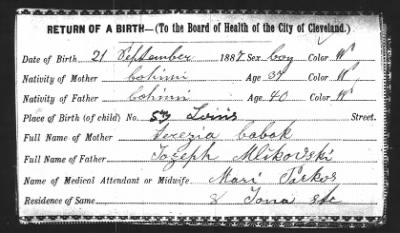 RETURN OF A BIRTH—(To the Board of Health of the City of Cleveland.)
Date of Birth 21 September 1887. Sex boy Color W
Nativity of Mother bohimi Age 37 Color W
Nativity of Father bohimi Age 40 Color W
Place of Birth (of child) No. Street.
Full Name of Mother Terezia Cabak
Full Name of Father Jozeph Mlikovski
Name of Medical Attendant or Midwife, Mari
Residence of Same Iona